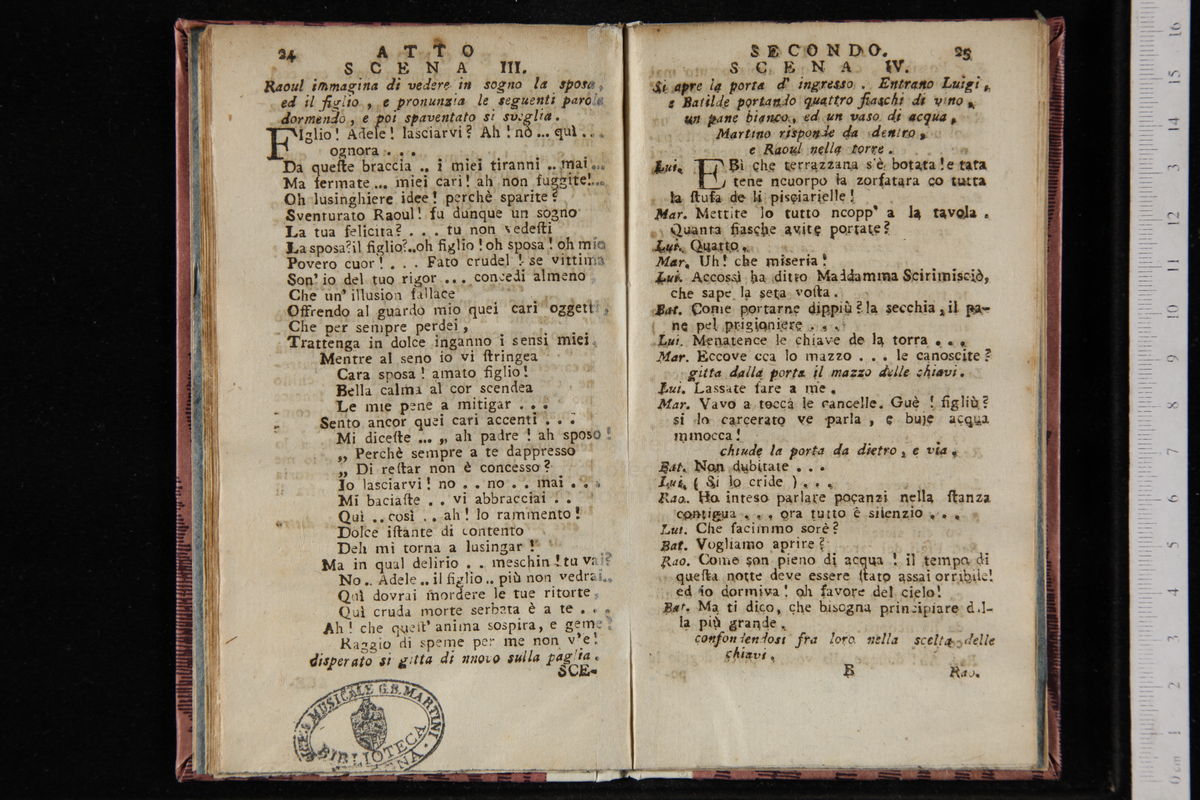 24 ATTO
SCENA III.
Raoul immagina di vedere in sogno la sposa,
ed il figlio, e pronunzia le seguenti parole
dormendo, e poi spaventato si sveglia.
FIglio! Adele! lasciarvi? Ah! nò... quì...
ognora...
Da queſte braccia .. i miei tiranni .. mai...
Ma fermate... miei cari! ah non fuggite!...
Oh lusinghiere idee! perchè sparite?
Sventurato Raoul! fu dunque un sogno
La tua felicita?... tu non vedeſti
La sposa? il figlio?..oh figlio! oh sposa! oh mio
Povero cuor!... Fato crudel! se vittima
Son' io del tuo rigor... concedi almeno
Che un' illusion fallace
Offrendo al guardo mio quei cari oggetti,
Che per sempre perdei,
Trattenga in dolce inganno i sensi miei.
Mentre al seno io vi ſtringea
Cara sposa! amato figlio!
Bella calma al cor scendea
Le mie pene a mitigar...
Sento ancor quei cari accenti...
Mi diceſte... „ ah padre! ah sposo!
„ Perchè sempre a te dappresso
„ Di reſtar non è concesso?
Io lasciarvi! no .. no .. mai...
Mi baciaſte .. vi abbracciai ..
Quì .. così .. ah! lo rammento!
Dolce iſtante di contento
Deh mi torna a lusingar!
Ma in qual delirio .. meschin! tu vai?
No.. Adele.. il figlio.. più non vedrai..
Quì dovrai mordere le tue ritorte,
Quì cruda morte serbata è a te...
Ah! che queſt' anima sospira, e geme!
Raggio di speme per me non v'e!
disperato si gitta di nuovo sulla paglia.
SCE-
MUSICALE G.B. MARTINI
BIBLIOTECA
SECONDO. 25
SCENA IV.
Si apre la porta d' ingresso. Entrano Luigi,
e Batilde portando quattro fiaschi di vino,
un pane bianco, ed un vaso di acqua,
Martino risponde da dentro,
e Raoul nella torre.
Lui. EBì che terrazzana s'è botata! e tata
tene ncuorpo la zorfatara co tutta
la ſtufa de li pisciarielle!
Mar. Mettite lo tutto ncopp' a la tavola.
Quanta fiasche avite portate?
Lui. Quatto.
Mar. Uh! che miseria!
Lui. Accossì ha ditto Maddamma Scirimisciò,
che sape la seta voſta.
Bat. Come portarne dippiù? la secchia, il pa-
ne pel prigioniere...
Lui. Menatence le chiave de la torra...
Mar. Eccove cca lo mazzo... le canoscite?
gitta dalla porta il mazzo delle chiavi.
Lui. Lassate fare a me.
Mar. Vavo a toccà le cancelle. Guè! figliù?
si lo carcerato ve parla, e buje acqua
mmocca!
chiude la porta da dietro, e via.
Bat. Non dubitate...
Lui. (Si lo cride)...
Rao. Ho inteso parlare poçanzi nella ſtanza
contigua... ora tutto è silenzio...
Lui. Che facimmo sorè?
Bat. Vogliamo aprire?
Rao. Come son pieno di acqua! il tempo di
queſta notte deve essere ſtato assai orribile!
ed io dormiva! oh favore del cielo!
Bat. Ma ti dico, che bisogna principiare dal-
la più grande.
confondendosi fra loro nella scelta delle
chiavi.
B Rao.